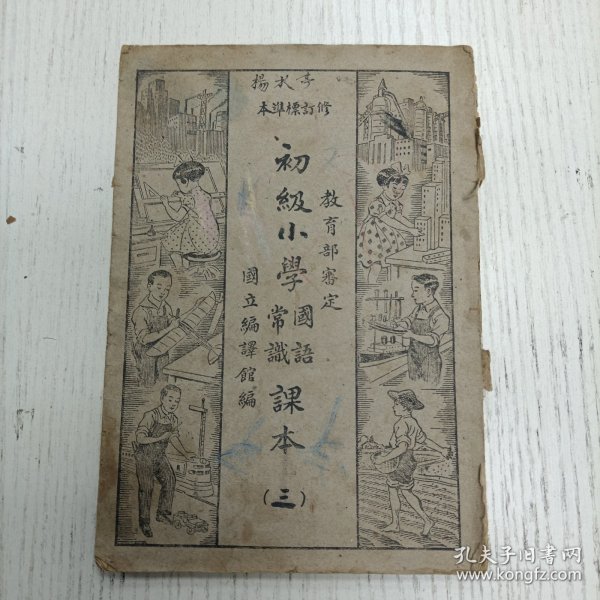 修訂標準本
教育部審定
初級小學
國語
常識
課本
(三)
國立編譯館編
孔夫子旧书网
www.kongfz.com